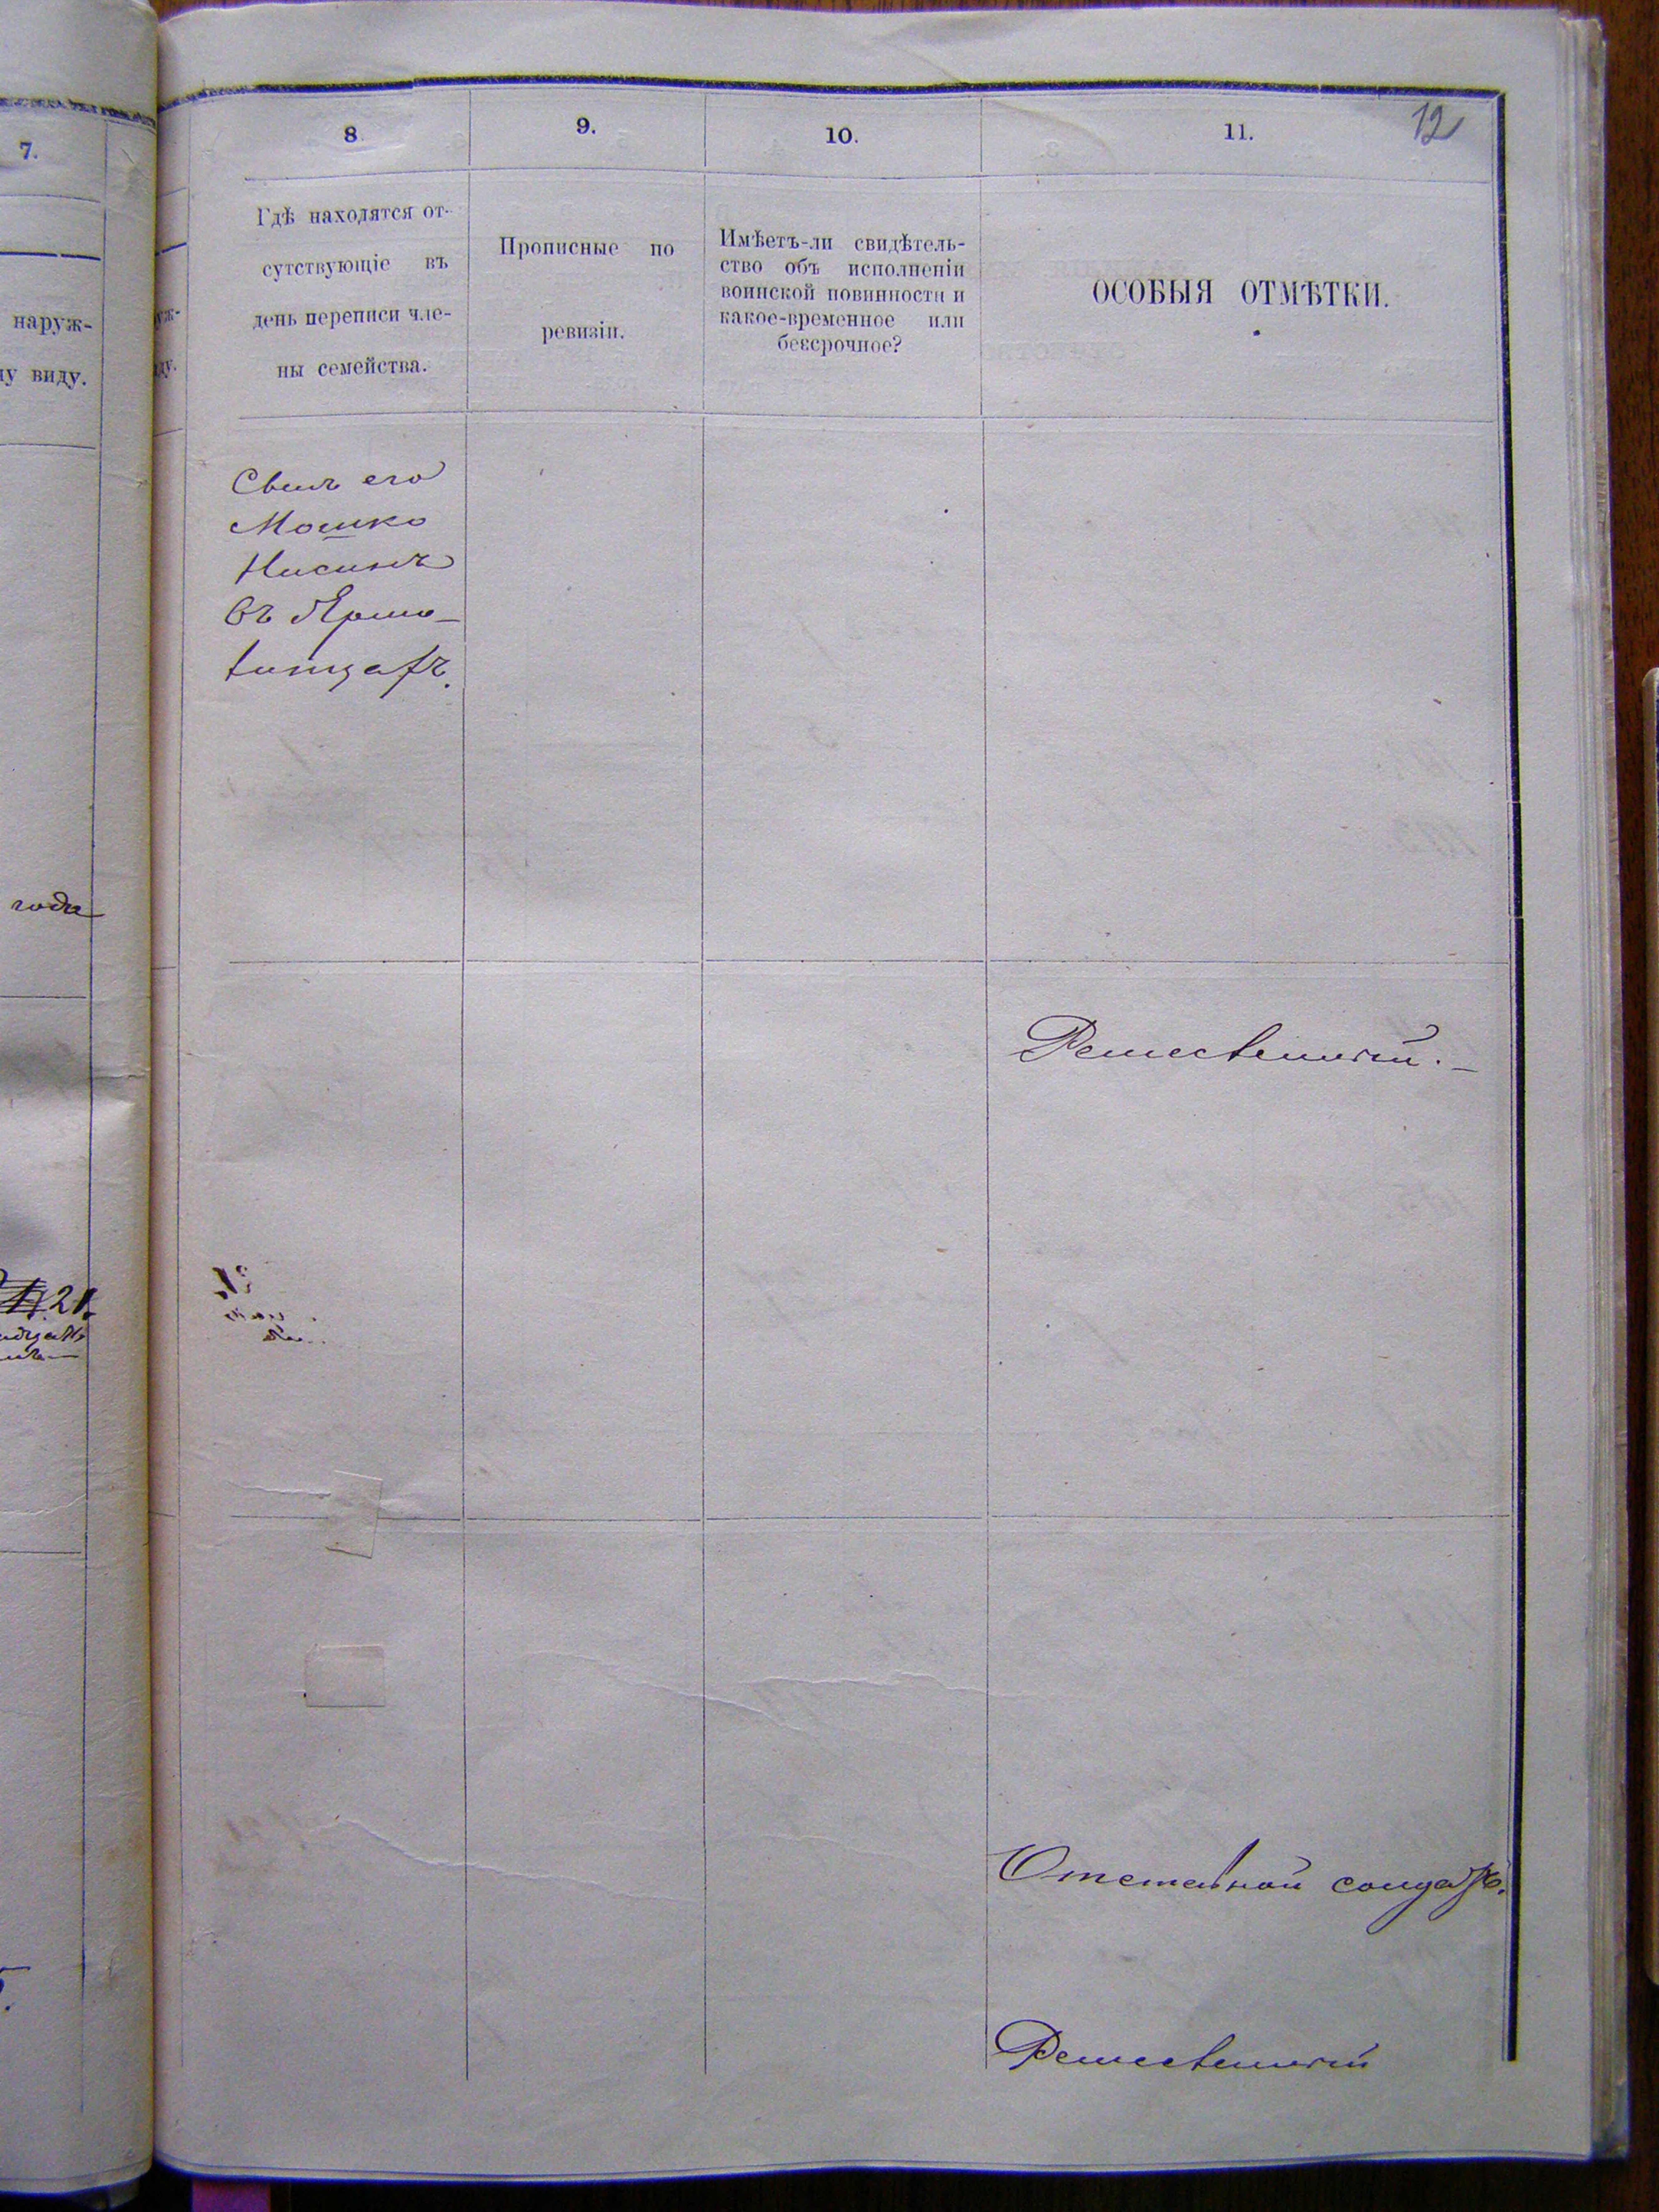 7.
наруж-
у виду.
года
21
8.
9.
10.
11.
12
Гдѣ находятся от-
сутствующіе въ
день переписи чле-
ны семейства.
Прописные по
ревизіи.
Имѣетъ-ли свидѣтель-
ство объ исполненіи
воинской повинности и
какое-временное или
безсрочное?
ОСОБЫЯ ОТМѢТКИ.
его
Мошко
Нисинъ
въ
Ремесленный.
Отставной солдатъ.
Ремесленный